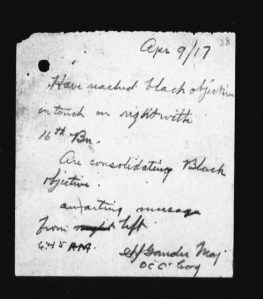 Apr 9/17
Have reached black objective
in touch on right with
16th Bn.
Are consolidating Black
objective.
awaiting message
from right left
6.45 AM. Maj
OC "C" Coy